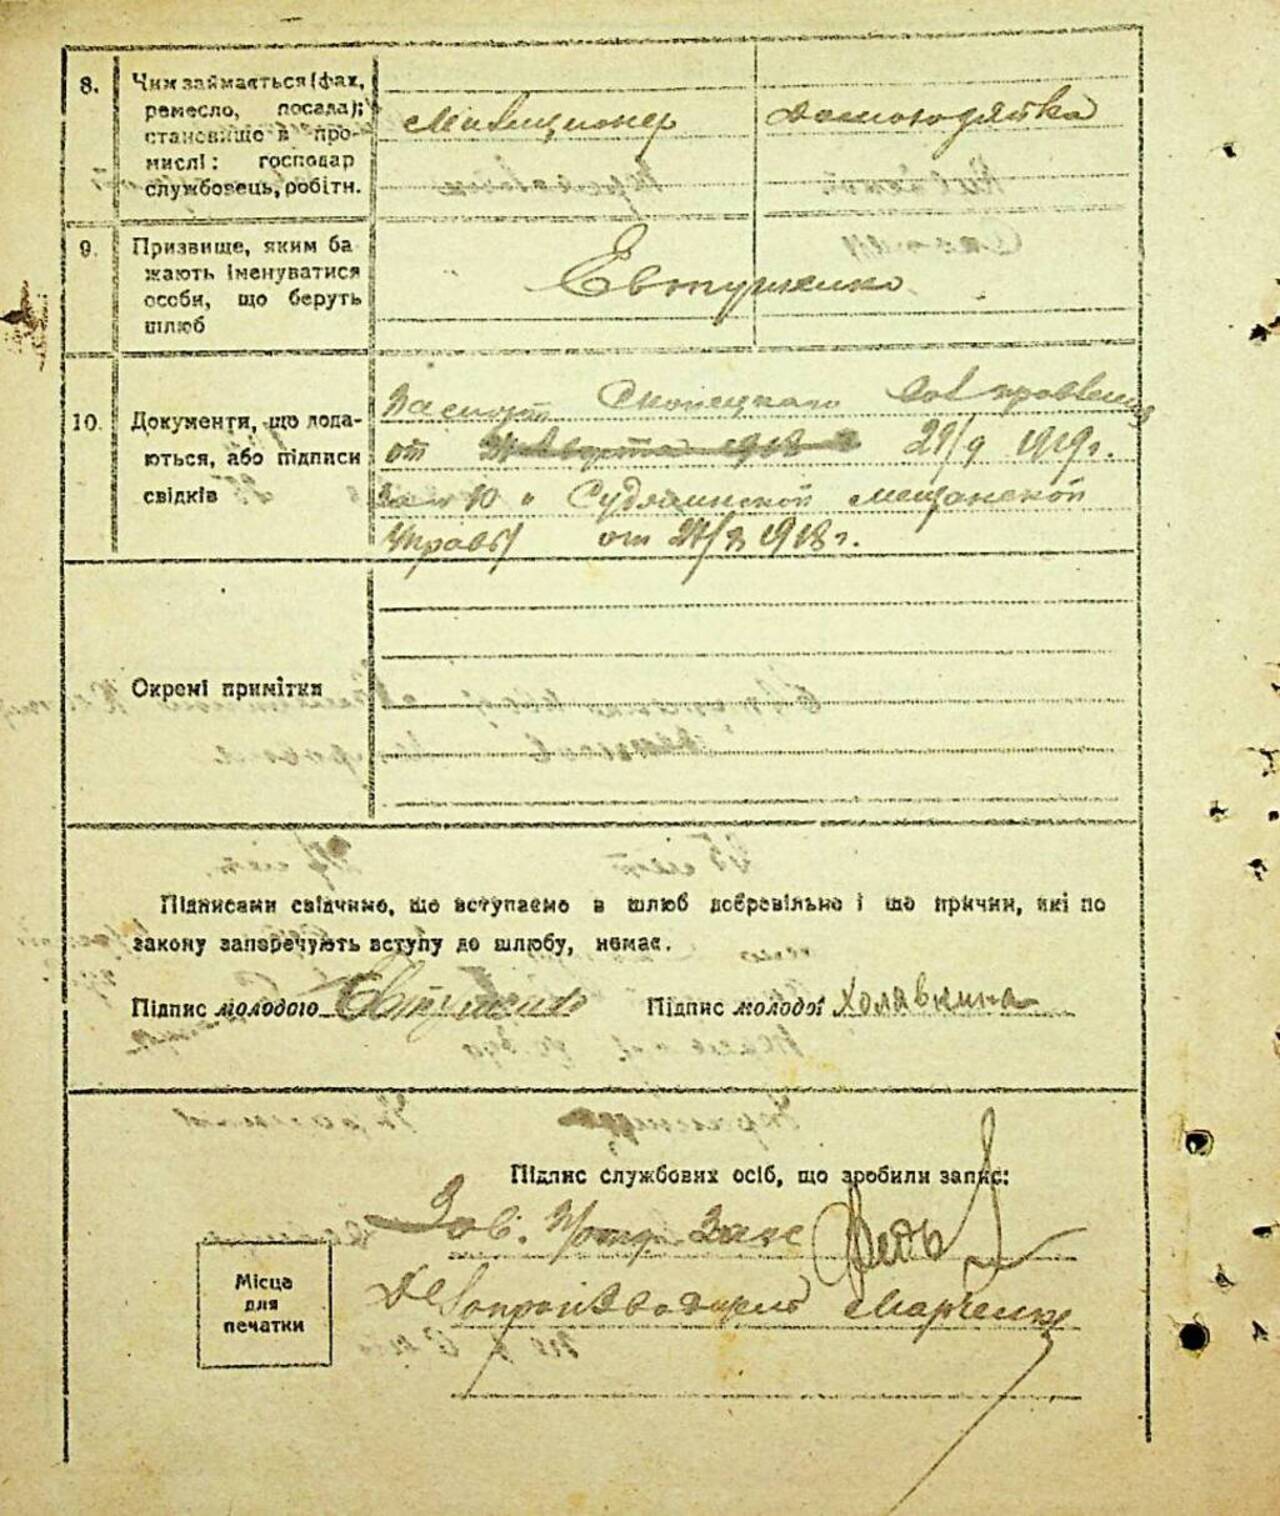 8. Чим займається (фах,
ремесло, посада);
становище в про-
мислі: господар
службовець, робітн.
Милиционер
домохозяйка
9. Призвище, яким ба
жають іменуватися
особи, що беруть
шлюб
Евтушенко
10. Документи, що дода-
ються, або підписи
свідків
Паспорт Скопецкаго
от 21/9 1919г.
За № 10 " мещанской
Управы от 1918 г.
Окремі примітки
Підписами свідчимо, що вступаємо в шлюб добровільно і що причин, які по
закону заперечують вступу до шлюбу, немає.
Підпис молодого Евтушенко Підпис молодої Холявкина
Підпис службових осіб, що зробили запис:
Зав.
Делопроизводитель Марченко
Місце
для
печатки